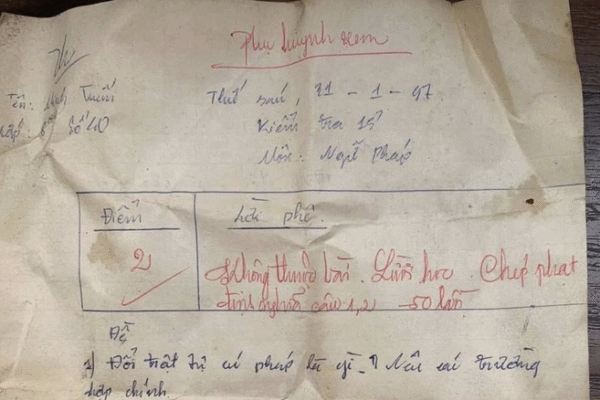 Phụ huynh xem
Tên: Anh Tuấn
Thứ sáu, 11 - 1 - 97
Lớp: 8 Số 40
Kiểm tra 15'
Môn: Ngữ Pháp
Điểm
Lời phê
2
Không thuộc bài. Lười học. Chép phạt
định nghĩa câu 1, 2 50 lần
Đề
1) Đổi trật tự cú pháp là gì? Nêu các trường
hợp chính.